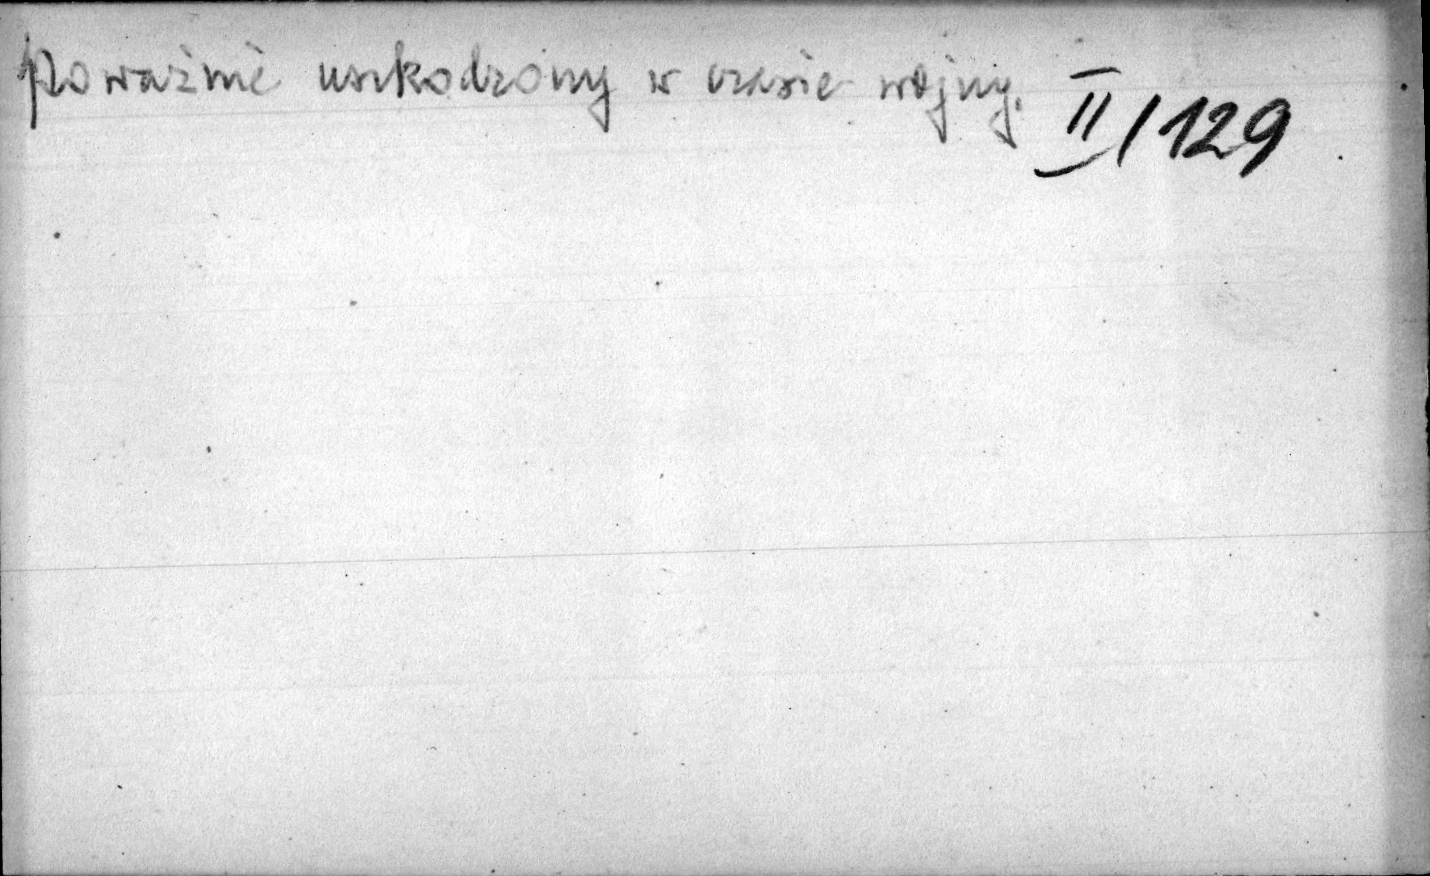 Poważnie uszkodzony w czasie wojny. II/129